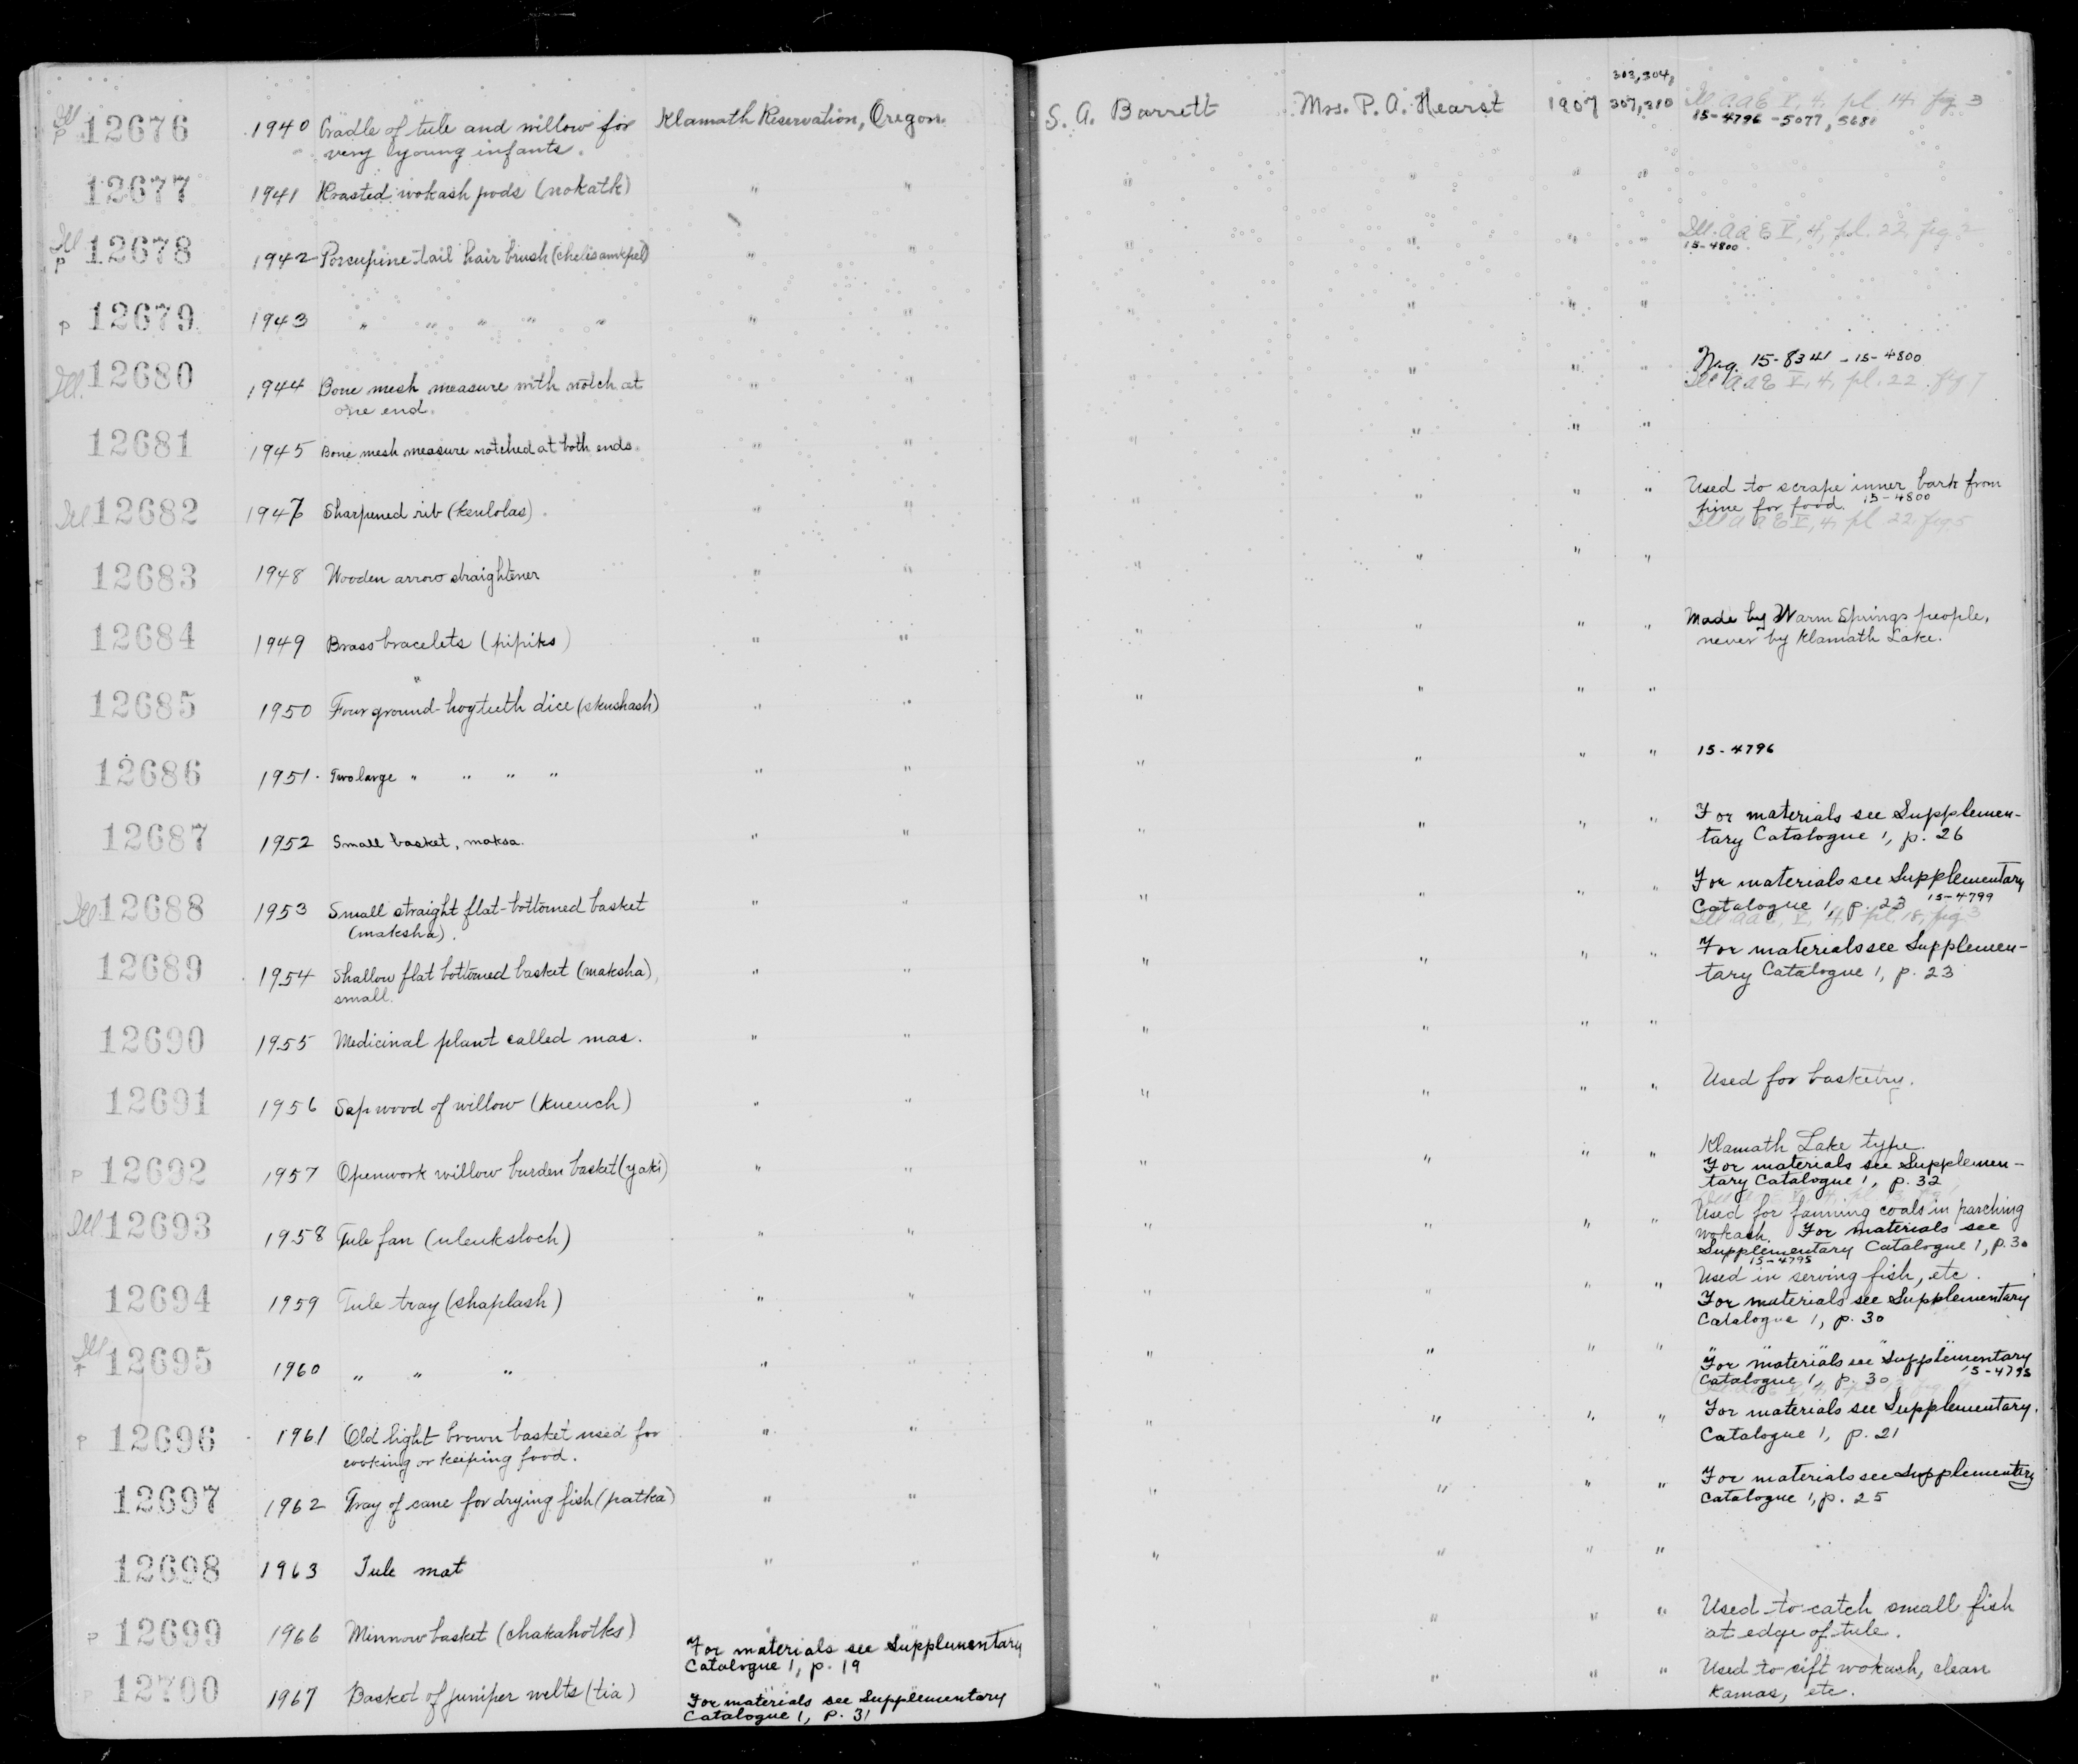 Ill 12676 1940 Cradle of tule and willow for Klamath Reservation, Oregon. S. A. Barrett Mrs. P. A. Hearst 1907 303, 304, Ill. AAE V, 4, pl. 14, fig. 3
p very young infants. 307, 310 15-4796 -5077, 5681
12677 1941 Roasted wokash pods (nokatk) " " " " " "
Ill 12678 1942 Porcupine tail hair brush (chelisamkpel) " " " " " " Ill. AAE V, 4, pl. 22, fig. 2
p 15-4800
p 12679 1943 " " " " " " " " " " "
Ill. 12680 1944 Bone mesh measure with notch at " " " " " " Neg. 15-8341 - 15-4800
one end. Ill AAE V, 4, pl. 22. fig. 7
12681 1945 Bone mesh measure notched at both ends. " " " " " "
Ill 12682 1947 Sharpened rib (kenlolas). " " " " " " Used to scrape inner bark from
pine for food. 15-4800
Ill AAE V, 4, pl 22, fig 5
12683 1948 Wooden arrow straightener " " " " "
12684 1949 Brass bracelets (pipiks) " " " " " " Made by Warm Springs people,
never by Klamath Lake.
12685 1950 Four ground-hog teeth dice (skushash) " " " " " "
12686 1951. Two large " " " " " " " " " " 15-4796
12687 1952 Small basket, maksa. " " " " " " For materials see Supplemen-
tary Catalogue 1, p. 26
Ill 12688 1953 Small straight flat-bottomed basket " " " " " " For materials see Supplementary
(maksha). Catalogue 1, p. 23 15-4799
Ill AAE, V, 4, pl. 18, fig. 3
12689 1954 Shallow flat bottomed basket (maksha), " " " " " " For materials see Supplemen-
small. tary Catalogue 1, p. 23
12690 1955 Medicinal plant called mas. " " " " " "
12691 1956 Sap wood of willow (kueuch) " " " " " " Used for basketry.
p 12692 1957 Openwork willow burden basket (yaki) " " " " " " Klamath Lake type.
For materials see Supplemen-
tary Catalogue 1, p. 32
Ill 12693 1958 Tule fan (uleuksloch) " " " " " " Used for fanning coals in parching
wokash. For materials see
Supplementary Catalogue 1, p. 30
15-4795
12694 1959 Tule tray (shaplash) " " " " " " Used in serving fish, etc.
For materials see Supplementary
Catalogue 1, p. 30
Ill 12695 1960 " " " " " " " " " " " "
For materials see Supplementary
Catalogue 1, p. 30 15-4795
p 12696 1961 Old light brown basket used for " " " " " " For materials see Supplementary.
cooking or keeping food. Catalogue 1, p. 21
12697 1962 Tray of cane for drying fish (patka) " " " " " " For materials see Supplementary
Catalogue 1, p. 25
12698 1963 Tule mat " " " " " "
p 12699 1966 Minnow basket (chakahotks) " " " " " Used to catch small fish
For materials see Supplementary at edge of tule.
Catalogue 1, p. 19
p 12700 1967 Basket of juniper welts (tia) " " " " " Used to sift wokash, clean
For materials see Supplementary kamas, etc.
Catalogue 1, p. 31